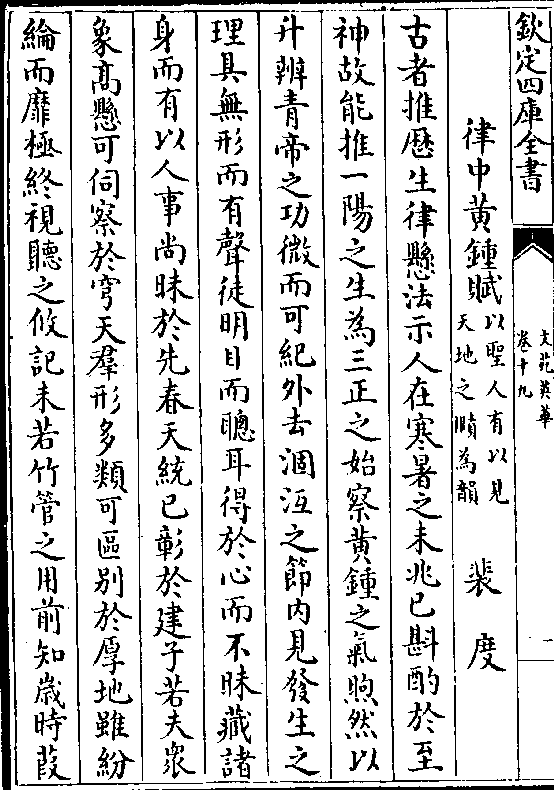 欽定四庫全書
文苑英華
卷十九
一
律中黃鍾賦以聖人有以見天地之賾為韻 裴度
古者推厯生律懸法示人在寒暑之未兆已斟酌於至
神故能推一陽之生為三正之始察黃鍾之氣煦然以
升辨青帝之功微而可紀外去涸沍之節内見發生之
理具無形而有聲徒明目而聰耳得於心而不昧藏諸
身而有以人事尚昧於先春天統已彰於建子若夫衆
象高懸可伺察於穹天羣形多類可區别於厚地雖紛
綸而靡極終視聽之攸記未若竹管之用前知歳時葭